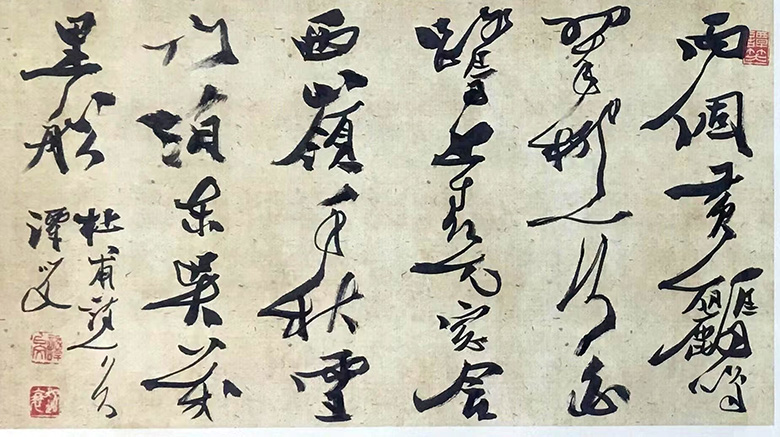 兩個黄鸝鳴
翠柳一行白
鷺上青天窓含
西嶺千秋雪
门泊東吴萬
里船
杜甫詩一首
潭